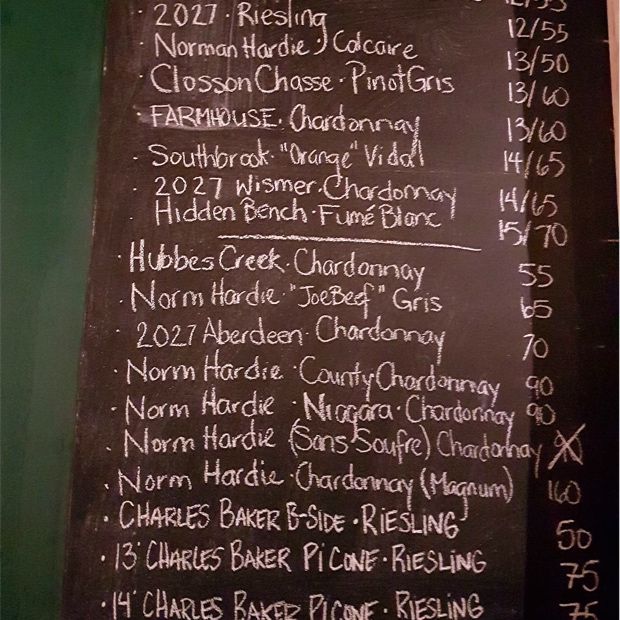 · 2027 · Riesling 12/55
· Norman Hardie · Calcaire 13/50
· Closson Chasse · Pinot Gris 13/60
· FARMHOUSE · Chardonnay 13/60
· Southbrook · "Orange" Vidal 14/65
· 2027 Wismer · Chardonnay 14/65
· Hidden Bench · Fumé Blanc 15/70
· Hubbes Creek · Chardonnay 55
· Norm Hardie "JoeBeef" Gris 65
· 2027 Aberdeen · Chardonnay 70
· Norm Hardie · County Chardonnay 90
· Norm Hardie · Niagara · Chardonnay 90
· Norm Hardie (Sans Soufre) Chardonnay
· Norm Hardie · Chardonnay (Magnum) 160
· CHARLES BAKER B-SIDE · RIESLING 50
· 13' CHARLES BAKER PICONE · RIESLING 75
· 14' CHARLES BAKER PICONE · RIESLING 75